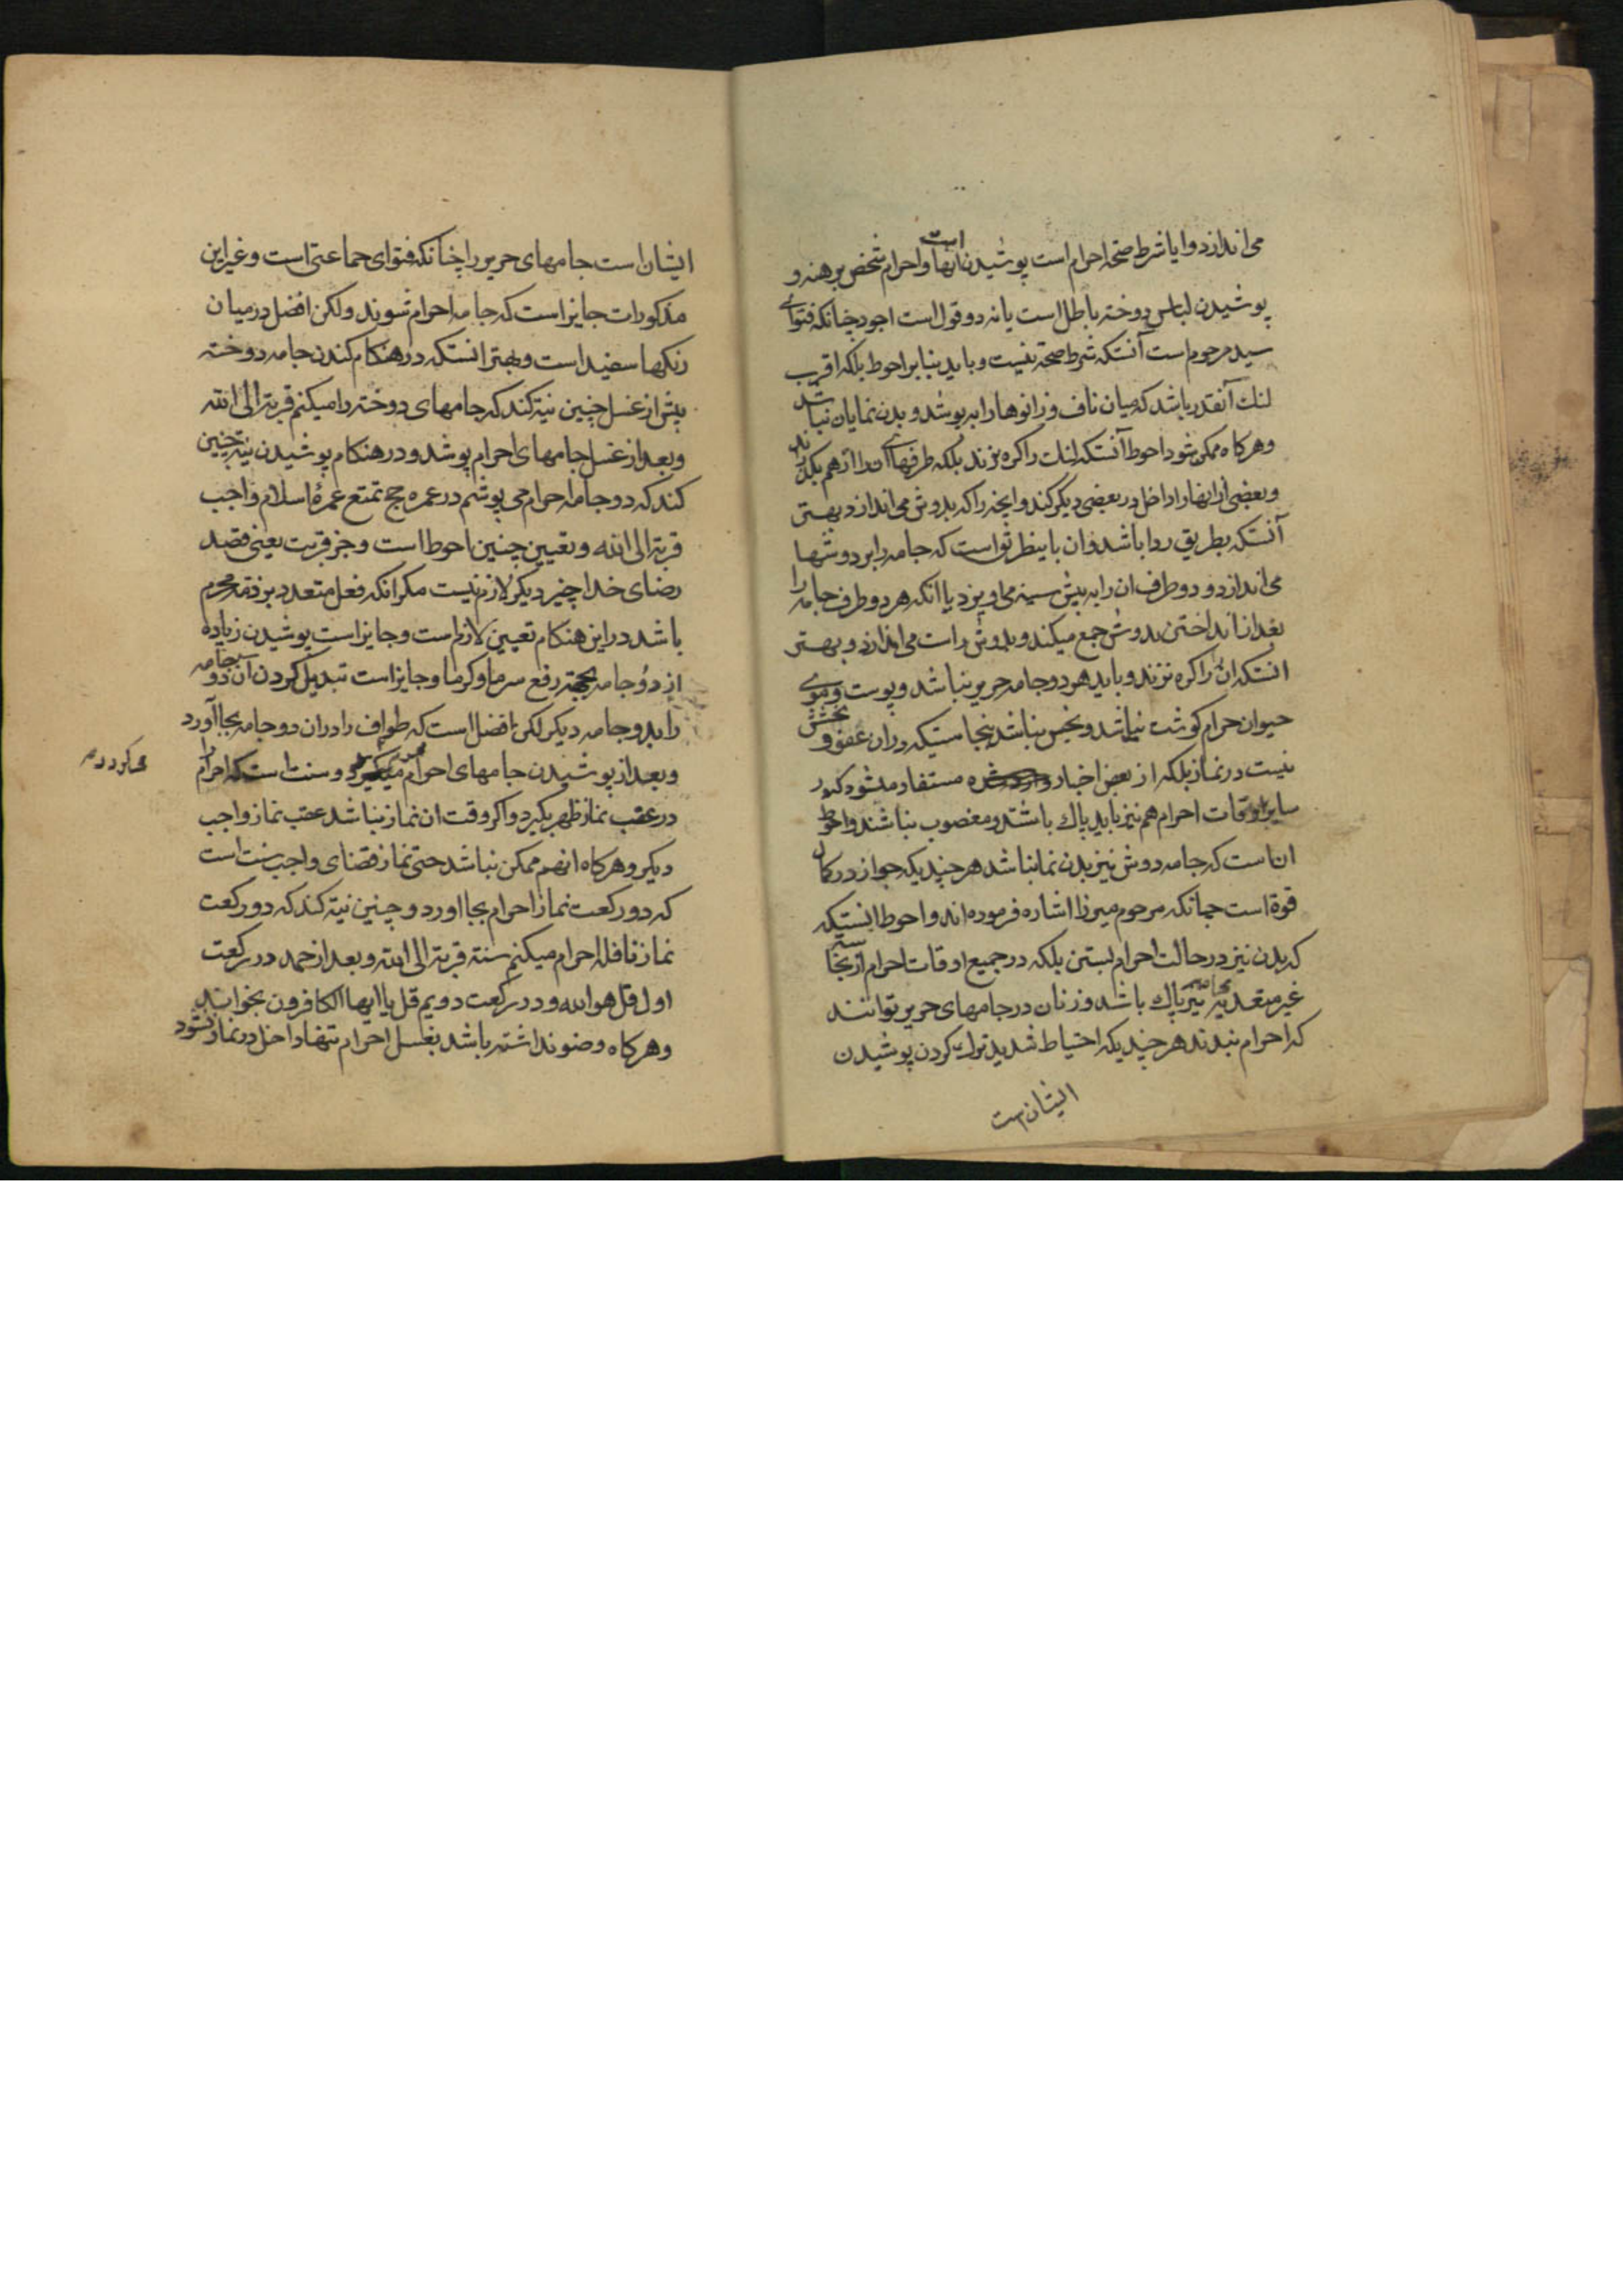 می اندازد و ایا شرط صحة احرام است پوشیدن انها و احرام شخص برهنه و
است
پوشیدن لباس دوخته باطل است یا نه دو قول است اجود چنانکه فتوای
سید مرحوم است آنستکه شرط صحة نیست و باید بنا بر احوط بلکه اقرب
لنك آنقدر باشد که میان ناف و زانوها را به پوشد و بدن نمایان نباشد
و هرکاه ممکن شود احوط آنستکه لنك را کره نزند بلکه طرفهای او را از هم بکذراند
و بعضی از انها را داخل در بعضی دیکر کند و انچه را که بدوش می اندازد بهتر
آنستکه بطریق ردا باشد و ان باینطریق است که جامه را بر دوشها
می اندازد و دو طرف ان را به پیش سینه می اویزد یا انکه هر دو طرف جامه را
بعد از انداختن بدوش جمع میکند و بدوش راست می اندازد و بهتر
انستکه ان را کره نزند و باید هر دو جامه حریر نباشد و پوست و موی
حیوان حرام کوشت نباشد و نجس نباشد بنجاستیکه در ان عفو و بخشش
نیست در نماز بلکه از بعض اخبار مستفاد میشود که در
سایر اوقات احرام هم نیز باید پاك باشند و مغصوب نباشند و احوط
ان است که جامه دوش نیز بدن نما نباشد هر چندیکه جواز در کمال
قوة است چنانکه مرحوم میرزا اشاره فرموده اند و احوط انستکه
که بدن نیز در حالت احرام بستن بلکه در جمیع اوقات احرام از نجاست
غیر متعدیه نیز پاك باشد و زنان در جامهای حریر توانند
که احرام بندند هر چندیکه احتیاط شدید ترك کردن پوشیدن
ایشان است
ایشان است جامهای حریر را چنانکه فتوای جماعتی است و غیر این
مذکورات جایز است که جامه احرام شوند و لکن افضل در میان
رنکها سفید است و بهتر انستکه در هنکام کندن جامه دوخته
پیش از غسل چنین نیة کند که جامهای دوخته را میکنم قربة الی الله
و بعد از غسل جامهای احرام پوشد و در هنکام پوشیدن نیة چنین
کند که دو جامه احرام می پوشم در عمره حج تمتع عمرۀ اسلام واجب
قربة الی الله و تعیین چنین احوط است و جز قربت یعنی قصد
رضای خدا چیز دیکر لازم نیست مکر انکه فعل متعدد بر ذمه محرم
باشد در این هنکام تعیین لازم است و جایز است پوشیدن زیاده
از دو جامه بجهة رفع سرما و کرما و جایز است تبدیل کردن آن دو جامه
را بدو جامه دیکر لکن افضل است که طواف را در ان دو جامه بجا آورد
و بعد از پوشیدن جامهای احرام و سنت است که احرام را
در عقب نماز ظهر بکیرد و اکر وقت ان نماز نباشد عقب نماز واجب
دیکر و هرکاه انهم ممکن نباشد حتی نماز قضای واجب سنت است
که دو رکعت نماز احرام بجا اورد و چنین نیة کند که دو رکعت
نماز نافله احرام میکنم سنة قربة الی الله و بعد از حمد در رکعت
اول قل هو الله و در رکعت دویم قل یا ایها الکافرون بخواند
و هرکاه وضو نداشته باشد بغسل احرام تنها داخل در نماز نشود